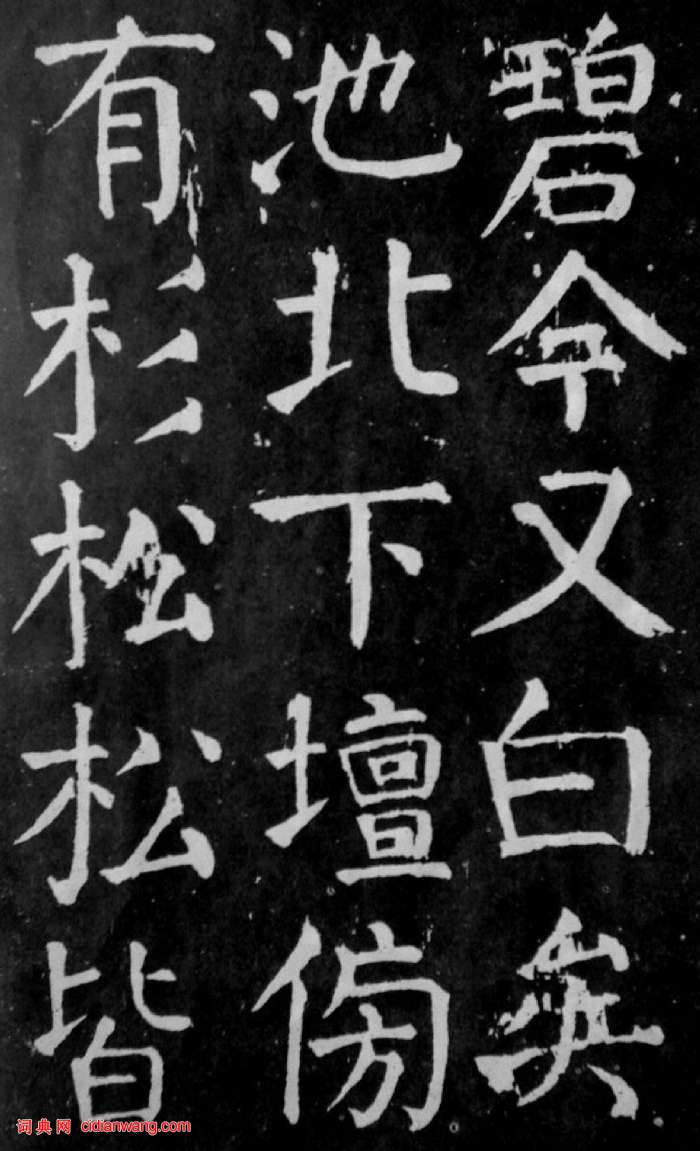 碧今又白矣
池北下壇傍
有杉松松皆
词典网 cidianwang.com